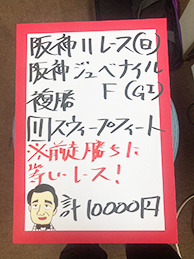 阪神11レース(日)
阪神ジュベナイル
複勝 F(GI)
11スウィープフィート
※前走勝ちに
等しいレース!
計10000円